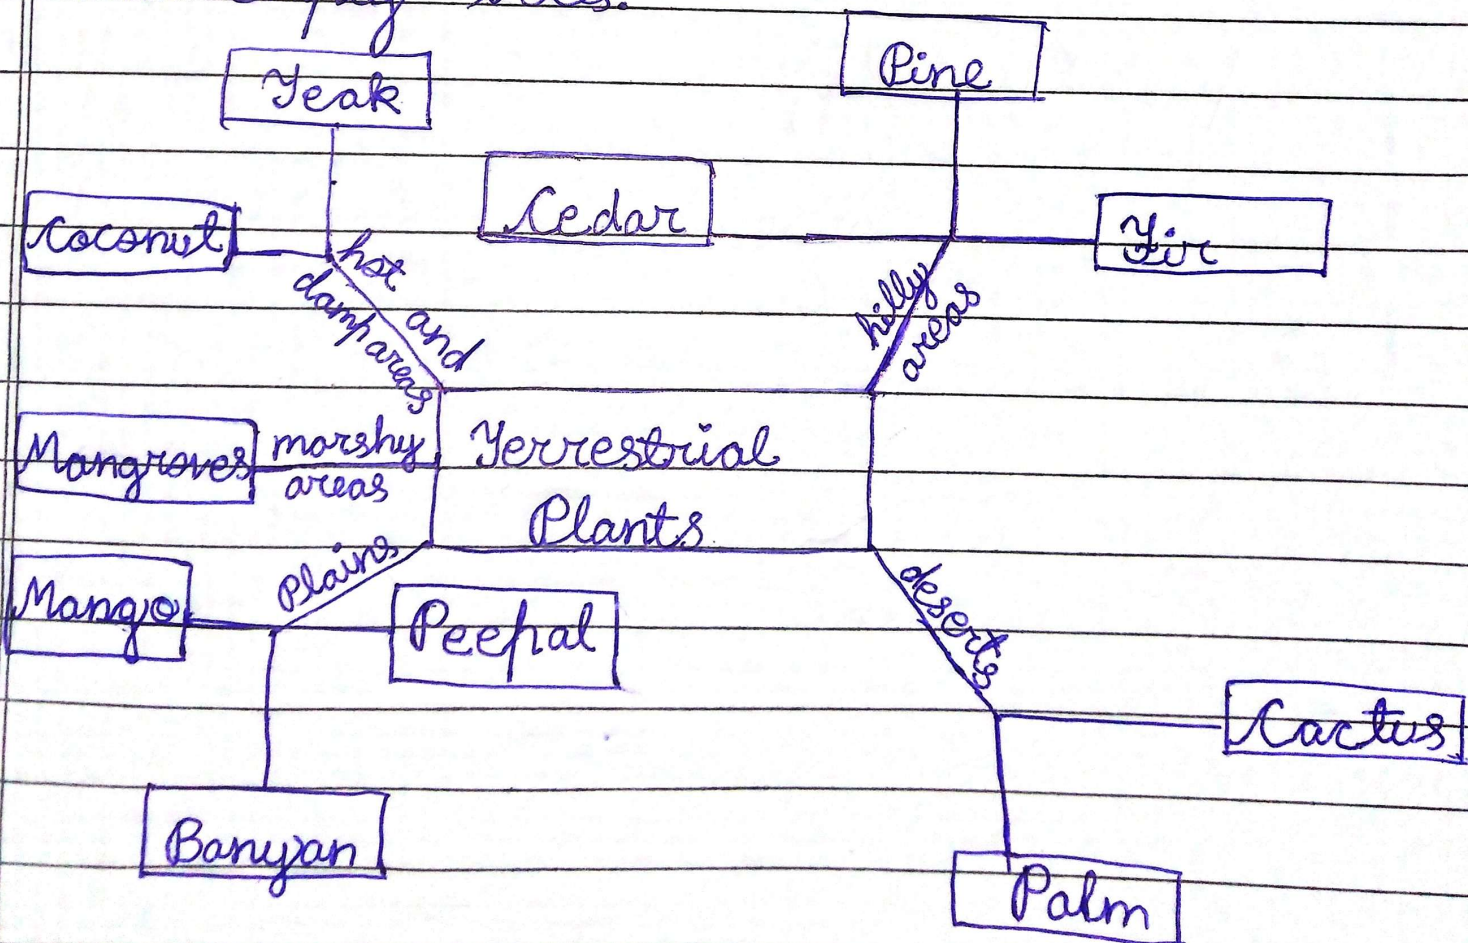 Teak
Pine
Cedar
Coconut
Fir
hot and
damp areas
hilly
areas
Mangroves
marshy
areas
Terrestrial
Plants
Plains
deserts
Mango
Peepal
Cactus
Banyan
Palm